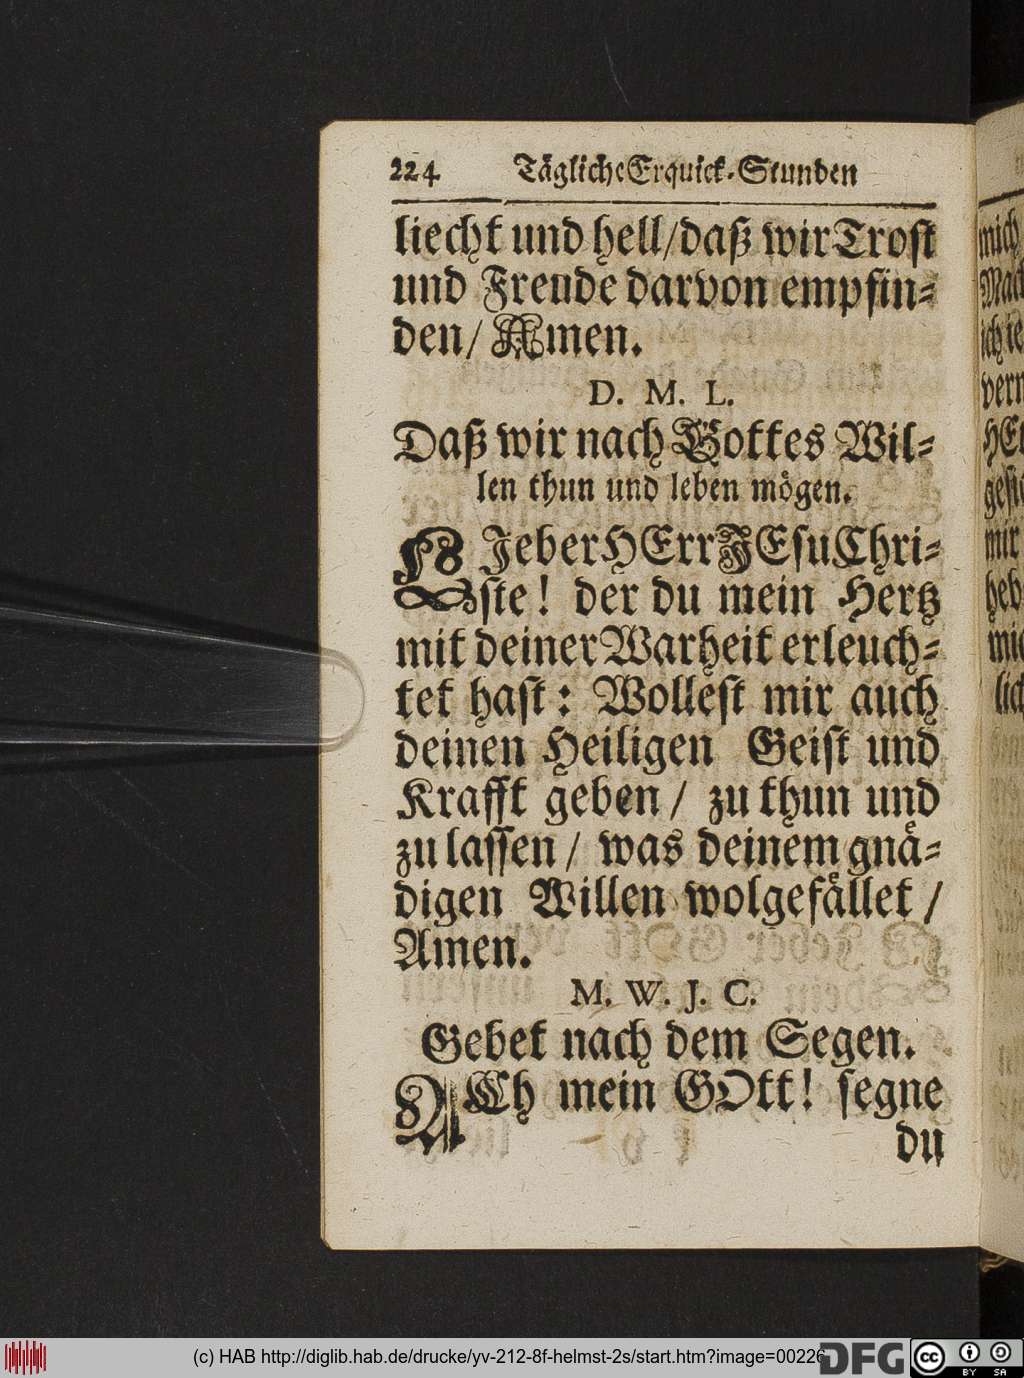 224 Tägliche Erquick-Stunden
liecht und hell/ daß wir Trost
und Freude darvon empfin-
den/ Amen.
D. M. L.
Daß wir nach Gottes Wil-
len thun und leben mögen.
LIeber HErr JEsu Chri-
ste! der du mein Hertz
mit deiner Warheit erleuch-
tet hast: Wollest mir auch
deinen Heiligen Geist und
Krafft geben / zu thun und
zu lassen / was deinem gnä-
digen Willen wolgefället /
Amen.
M. W. J. C.
Gebet nach dem Segen.
ACh mein GOtt! segne
du
mich
ich
mir
(c) HAB http://diglib.hab.de/drucke/yv-212-8f-helmst-2s/start.htm?image=00226
DFG
cc
BY SA